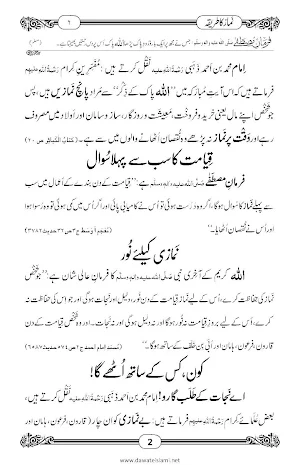 نماز کا طریقہ
۱
امام محمد بن احمد ذہبی رَحْمَةُ اللهِ علیہ نقل کرتے ہیں: مُفَسِّرینِ کرام رَحِمَهُمُ الله
فرماتے ہیں کہ اس آیتِ مُبارَکہ میں ”اللہ پاک کے ذِکر“ سے مُراد پانچ نمازیں ہیں، پس
جو شخص اپنے مال یعنی خرید و فروخت، مَعیشت و روزگار، ساز و سامان اور اَولاد میں مصروف
رہے اور وقت پر نماز نہ پڑھے وہ نقصان اُٹھانے والوں میں سے ہے۔ (کتاب الکبائر ص ۲۰)
قِیامت کا سب سے پہلا سُوال
فرمانِ مصطفٰے صَلَّى الله عليه واله وسلم ہے: ”قیامت کے دن بندے کے اَعمال میں سب
سے پہلے نماز کا سُوال ہوگا، اگر وہ دُرُست ہوئی تو اُس نے کامیابی پائی اور اگر اُس میں کمی ہوئی تو وہ رُسوا ہوا
اور اُس نے نقصان اُٹھایا۔“ (معجم اوسط ج ۳ ص ۳۲ حدیث ۳۷۸۲)
نَمازی کیلئے نُور
اللہ کریم کے آخری نبی صَلَّى الله عليه واله وسلم کا فرمانِ عالی شان ہے: ”جو شخص
نماز کی حفاظت کرے، اُس کے لیے نماز قیامت کے دن نور، دلیل اور نجات ہوگی اور جو اس کی حفاظت نہ
کرے، اس کے لیے بروزِ قیامت نہ نور ہوگا اور نہ دلیل اور نہ نجات ہوگی۔ اور وہ شخص قیامت کے دن
قارون، فرعون، ہامان اور اُبَی بن خلف کے ساتھ ہوگا۔“ (مسند امام احمد ج ۲ ص ۵۷۴ حدیث ۶۵۸۷)
کون، کس کے ساتھ اُٹھے گا!
اے نجات کے طلب گارو! امام محمد بن احمد ذہبی رَحْمَةُ اللهِ علیہ نقل کرتے ہیں:
بعض علمائے کرام رَحِمَهُمُ الله فرماتے ہیں: بے نمازی کو ان چار (قارون، فرعون، ہامان اور
2
www.dawateislami.net